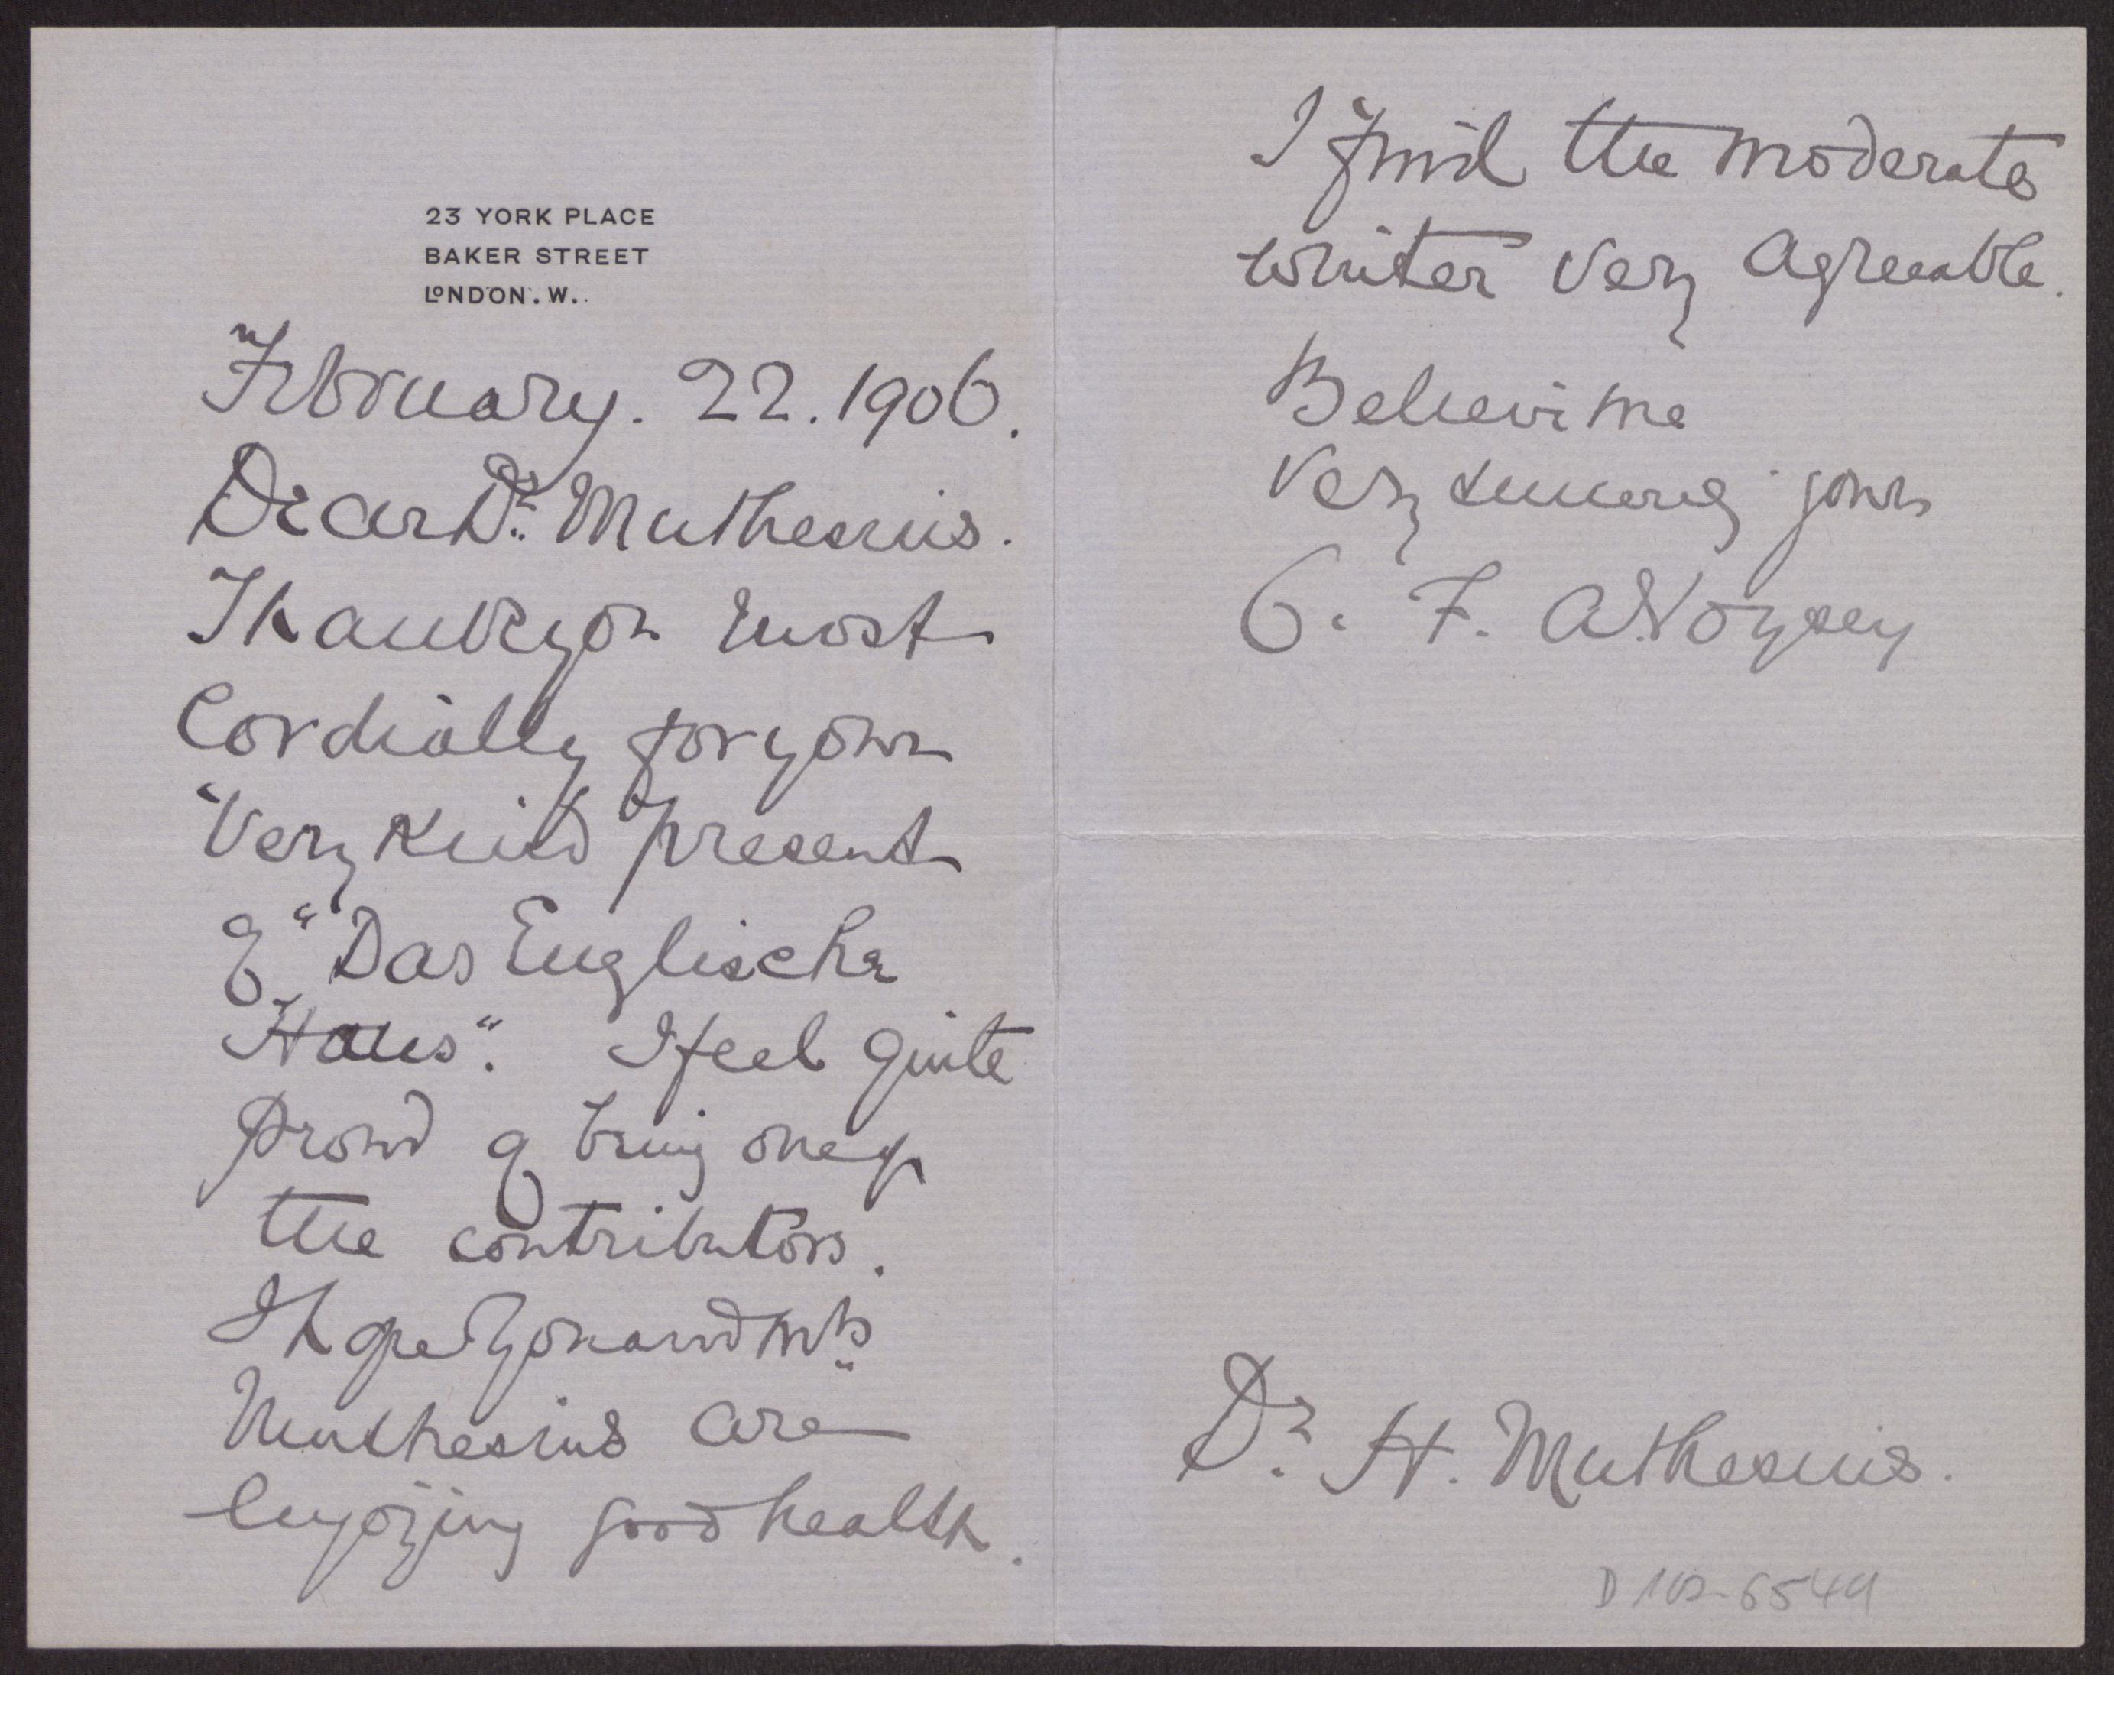 23 YORK PLACE
BAKER STREET
LONDON. W.
February. 22. 1906.
Dear Dr. Muthesius.
Thank you most
Cordially for your
Very kind present
of "Das Englische
Haus". I feel quite
proud of being one of
the contributors.
I hope you and Mrs
Muthesius are
enjoying good health.
I find the moderate
winter very agreeable.
Believe me
Very sincerely yours
C. F. A. Voysey
Dr. H. Muthesius.
D 102-6549